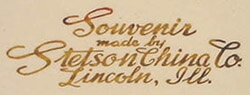 Souvenir
made by
Stetson China Co.
Lincoln, Ill.